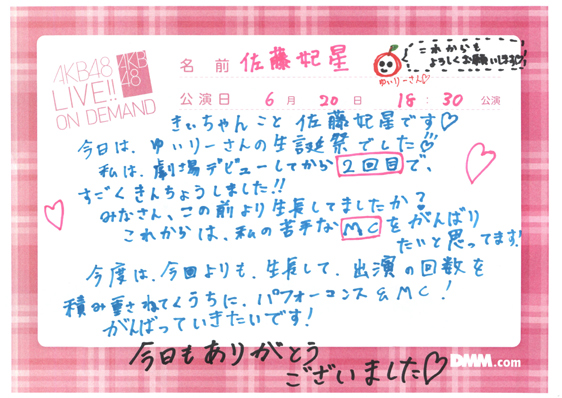 AKB48
LIVE!!
ON DEMAND
AKB
48
名前 佐藤妃星
これからも
よろしくお願いします♡
ゆいりーさん♡
公演日 6月 20日 18:30 公演
きぃちゃんこと 佐藤妃星です♡
今日は、ゆいりーさんの生誕祭でした♡!!
私は、劇場デビューしてから2回目で、
すごくきんちょうしました!!
みなさん、この前より生長してましたか?
これからは、私の苦手なMCをがんばり
たいと思ってます!
今度は、今回よりも、生長して、出演の回数を
積み重さねてくうちに、パフォーマンス&MC!
がんばっていきたいです!
今日もありがとう
ございました♡
DMM.com